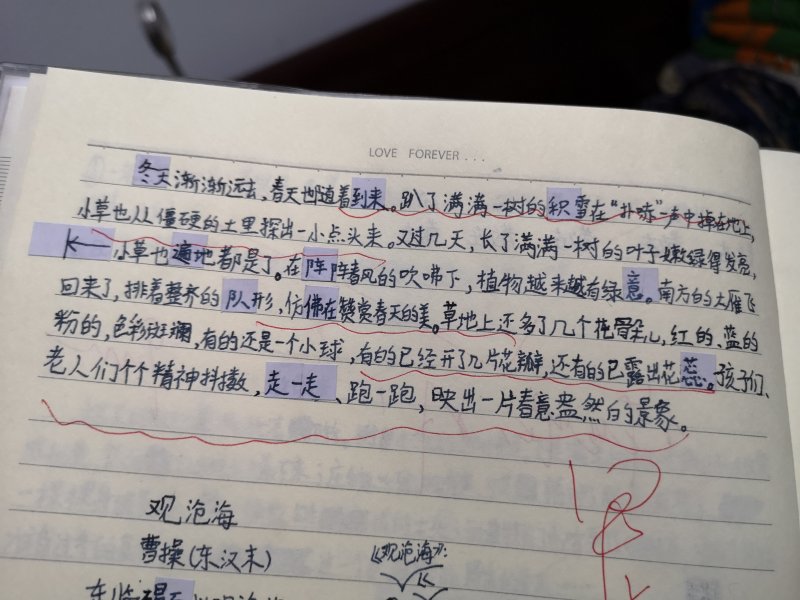 LOVE FOREVER...
冬天渐渐远去，春天也随着到来。趴了满满一树的积雪在“扑哧”一声中掉在地上，
小草也从僵硬的土里探出一小点头来。又过几天，长了满满一树的叶子嫩绿得发亮，
小草也遍地都是了。在阵阵春风的吹咈下，植物越来越有绿意。南方的大雁飞
回来了，排着整齐的队形，仿佛在赞赏春天的美。草地上还多了几个花骨朵儿，红的、蓝的
粉的，色彩斑斓，有的还是一个小球，有的已经开了几片花瓣，还有的已露出花蕊。孩子们、
老人们个个精神抖擞，走一走、跑一跑，映出一片春意盎然的景象。
观沧海
曹操（东汉末）
《观沧海》：
东临碣石
观沧海